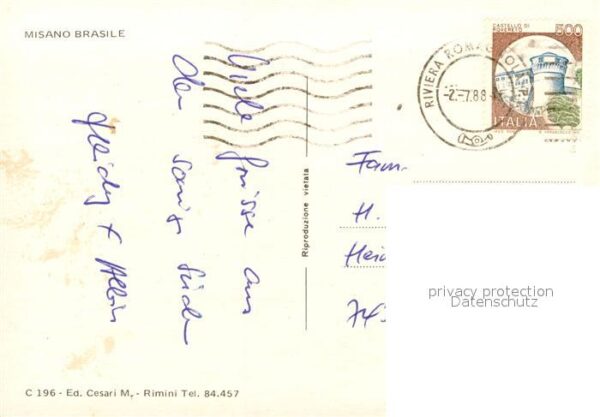 MISANO BRASILE
Viele Grüsse aus
dem sonnigen Süden
Heidy + Albin
Riproduzione vietata
C 196 - Ed. Cesari M. - Rimini Tel. 84.457
RIVIERA ROMAGNOL
-2.-7.88
CASTELLO DI
ROVERETO
500
ITALIA
Fam.
H.
Hei
74
privacy protection
Datenschutz